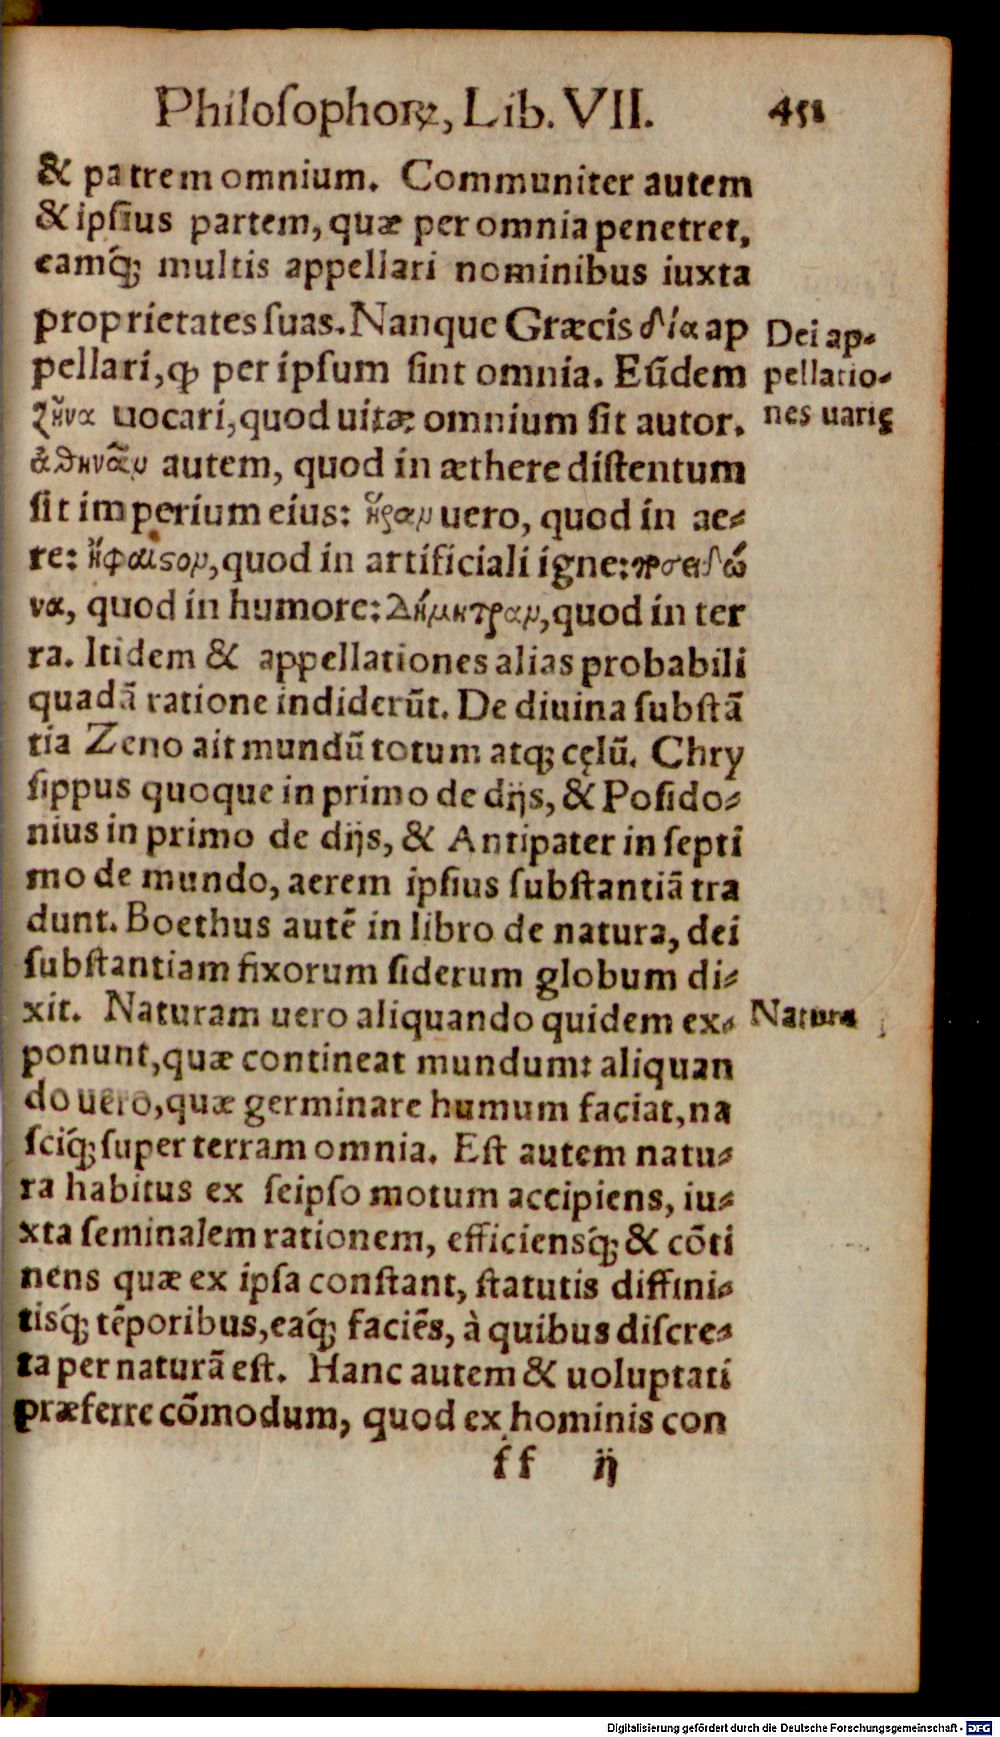 Philosophoꝝ, Lib. VII. 451
& patrem omnium. Communiter autem
& ipsius partem, quæ per omnia penetret,
eamq́; multis appellari nominibus iuxta
proprietates suas. Nanque Græcis δία ap
pellari, ꝙ per ipsum sint omnia. Eũdem
ζῆνα uocari, quod uitæ omnium sit autor.
ἀθηνᾶν autem, quod in æthere distentum
sit imperium eius: ἥραν uero, quod in ae⸗
re: ἥφαιςον, quod in artificiali igne: ποσειδῶ
να, quod in humore: Δήμητραν, quod in ter
ra. Itidem & appellationes alias probabili
quadã ratione indiderũt. De diuina substã
tia Zeno ait mundũ totum atq; cęlũ. Chry
sippus quoque in primo de dijs, & Posido⸗
nius in primo de dijs, & Antipater in septi
mo de mundo, aerem ipsius substantiã tra
dunt. Boethus autẽ in libro de natura, dei
substantiam fixorum siderum globum di⸗
xit. Naturam uero aliquando quidem ex⸗
ponunt, quæ contineat mundum: aliquan
do uero, quæ germinare humum faciat, na
sciq́; super terram omnia. Est autem natu⸗
ra habitus ex seipso motum accipiens, iu⸗
xta seminalem rationem, efficiensq́; & cõti
nens quæ ex ipsa constant, statutis diffini⸗
tisq́; tẽporibus, eaq́; faciẽs, à quibus discre⸗
ta per naturã est. Hanc autem & uoluptati
præferre cõmodum, quod ex hominis con
ff ij
Dei ap⸗
pellatio⸗
nes uarię
Natura
Digitalisierung gefördert durch die Deutsche Forschungsgemeinschaft - DFG